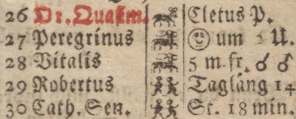 26 Dr. Quasim. Cletus P.
27 Peregrinus um 2 U.
28 Vitalis 5 m. fr. ♂ ♂
29 Robertus Taglang 14
30 Cath. Sen. St. 18 min.